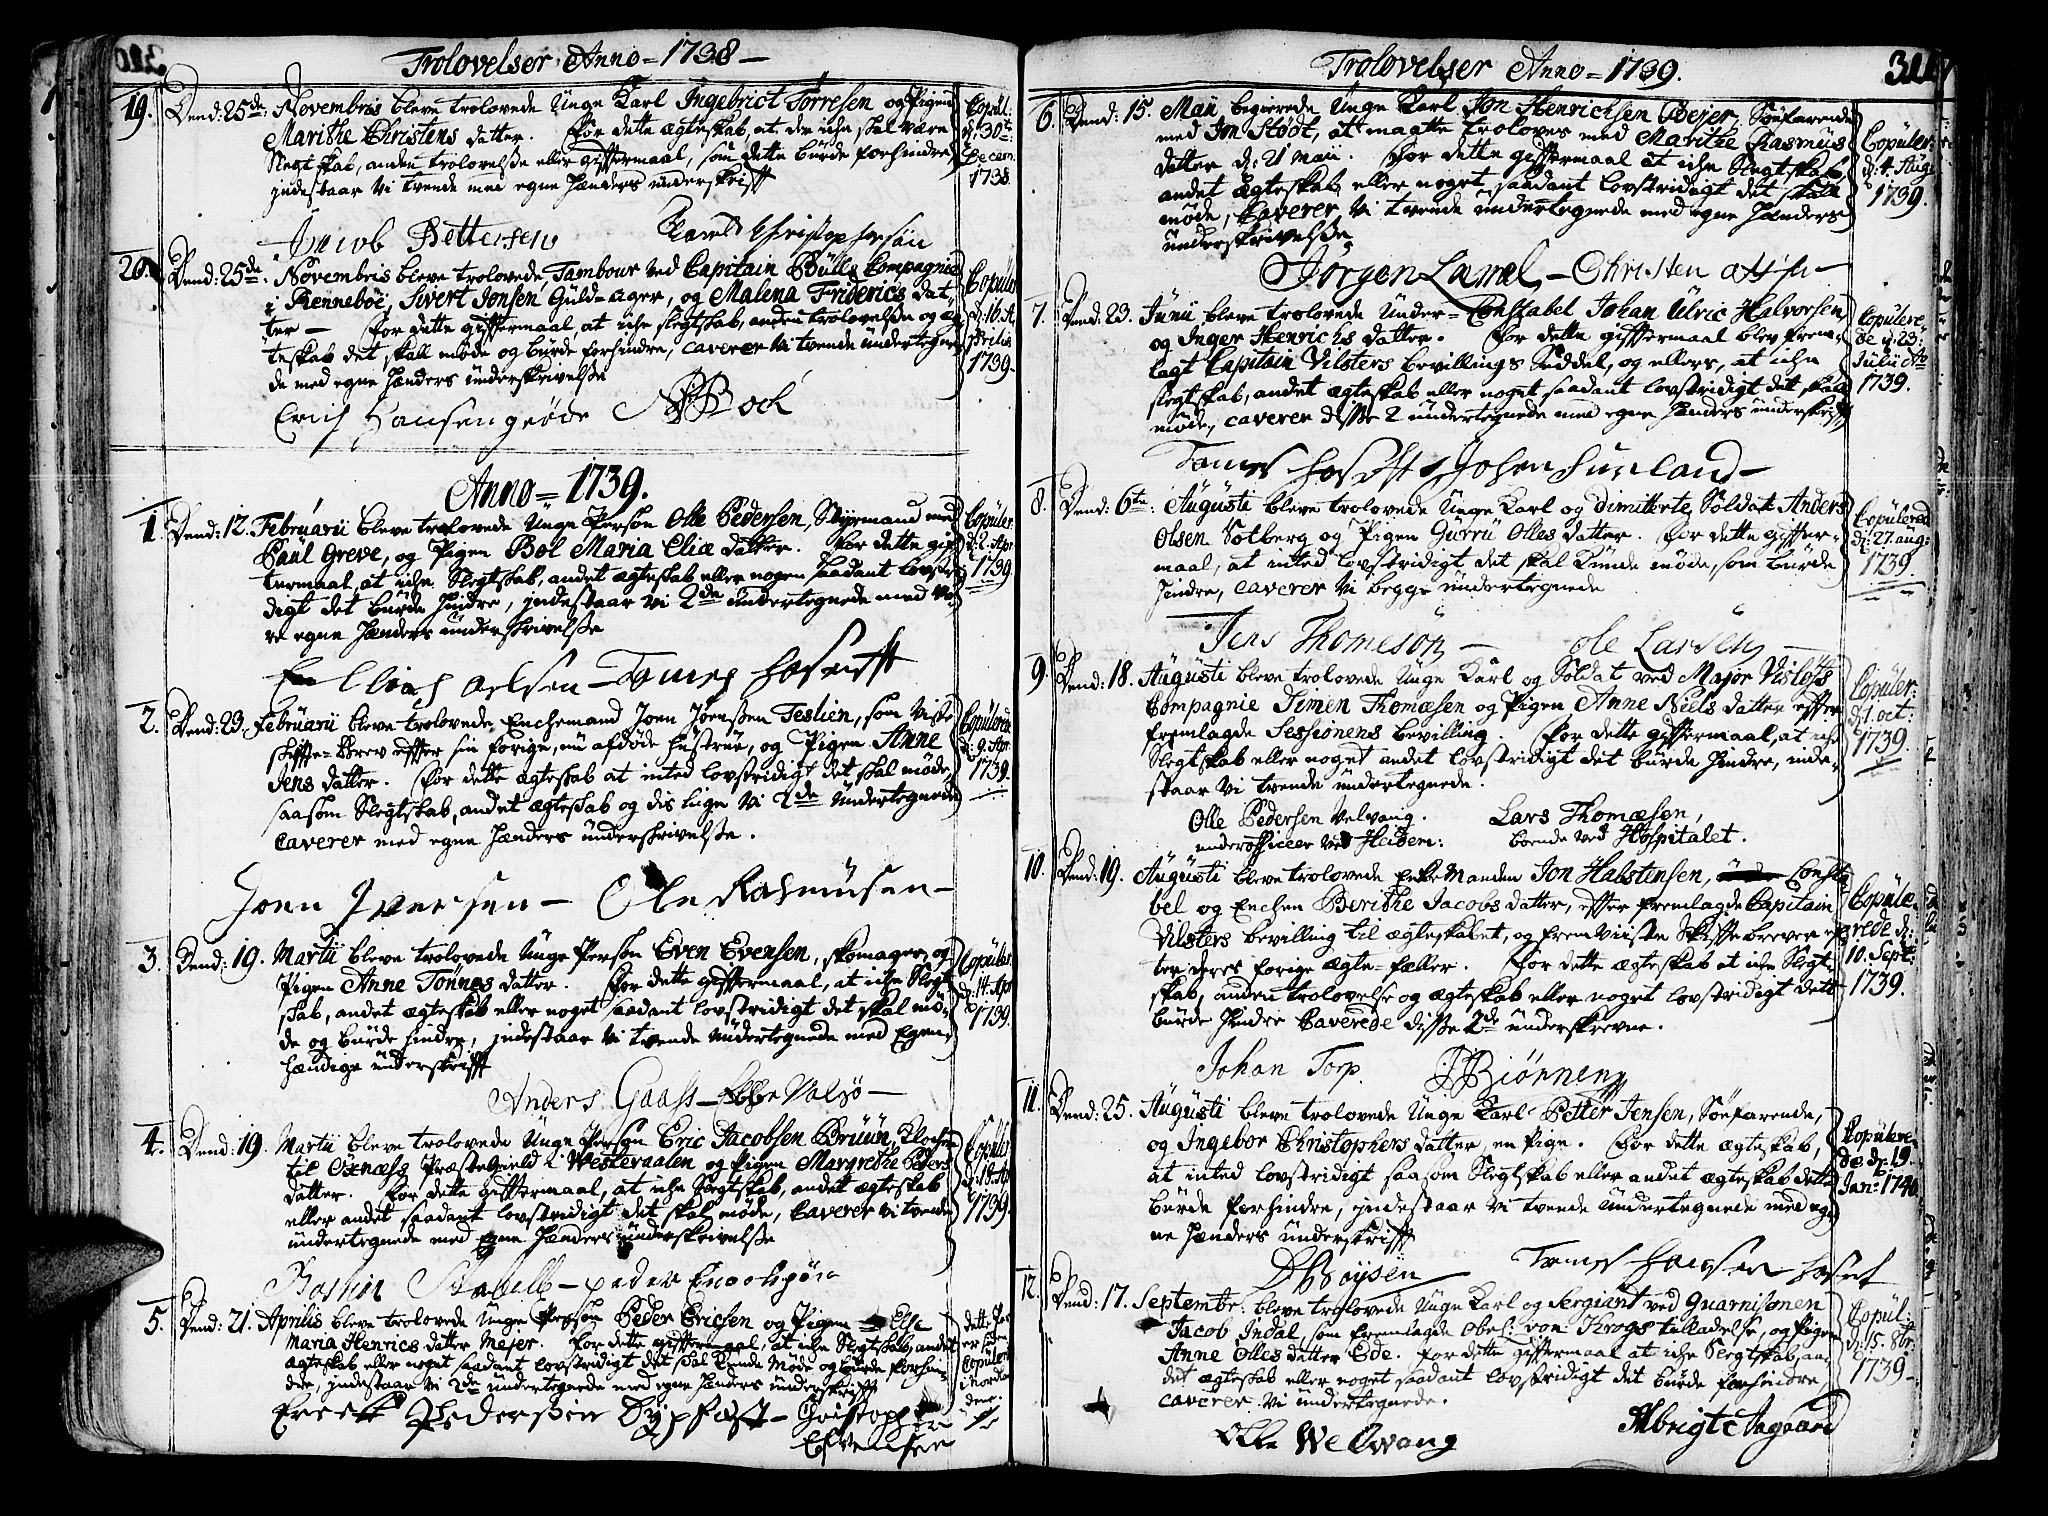 Trolovelser Anno = 1738 —
19. Dend: 25de: Novembris bleve trolovede Unge Karl Ingebrict Torresen og Pigen
Marithe Christens datter. For dette ægteskab, at der iche skal være
Slegtskab, anden trolovelse eller giftermaal, som dette burde forhindre
indestaar vi tvende med egne hænders underskrifft
Copul:
d: 30te
Decem:
1738.
Jacob Pettersen Christophersøn
20. Dend: 25de: Novembris bleve trolovede, Tambour ved Capitain Bülls Compagnie
i Rennebøe, Sivert Jonsen Guld-ager, og Malena Friderics dat,,
ter — For dette giftermaal, at iche slegtskab, anden trolovelse og æg,,
teskab det skall møde og burde forhindre, caverer vi tvende undertegne,,
de med egne hænders underskrivelse
Copuler
d: 16. A,,
prilis
1739.
Erich Hansen grøde Bock
Anno = 1739.
1. Dend: 12. Februarii bleve trolovede Unge Person Olle Pedersen, Styrmand med
Paul Greve, og Pigen Bol Maria Eliæ datter. For dette gif,,
termaal, at iche Slegtskab, andet ægteskab eller nogen saadant lovstri,,
digt det burde hindre, indestaar vi 2de undertegnede med vo,,
re egne hænders underskrivelse
Copuler
d: 2. Apr
1739.
2. Dend: 23. Februarii bleve trolovede, Enchemand Joen Joenssen Teslien, som viste
skiffte-brev effter sin forige, nu afdøde hustrue, og Pigen Anne
Jens datter. For dette ægteskab at inted lovstridigt det skal møde,
saasom Slegtskab, andet ægteskab og des lige vi 2de undertegnede
caverer med egne hænders underskrivelse.
Copulered
d: 9. Apr.
1739.
Joen Iversen — Ole Rasmüsen —
3. Dend: 19. Martii bleve trolovede Unge Person Even Evensen, skomager, og
Pigen Anne Tønnes datter. For dette giftermaal, at iche Slegt,,
skab, andet ægteskab eller noget saadant lovstridigt det skal mø,,
de og burde hindre, indestaar vi tvende undertegnede med Egen,,
hændige underskrifft
Copuler
d: 14. Apr
1739.
Anders Gaass — Ebbe Valsø —
4. Dend: 19. Martii bleve trolovede Unge Person Eric Jacobsen Bruun, Klocher
til Øxnæss Præstegield i Westeraalen og Pigen Margrethe Peders
datter. For dette giftermaal, at iche Slegtskab, andet ægteskab
eller andet saadant lovstridigt det skal møde, Caverer vi tvende
undertegnede med Egne hænders underskrivelse
Copuler
d: 18. Ap
1739.
5. Dend: 21. Aprilis bleve trolovede Unge Person Peder Ericsen og Pigen Else
Maria Henrics datter Mejer. For dette giftermaal, at iche Slegtskab, andet
ægteskab eller noget saadant lovstridigt det skal kunde møde og burde forhin,,
dre, indestaar vi 2de undertegnede med egne hænders underskrifft
dette Par
er siden
Copulert
i Nordlan
dene.
Pederssen Dypfest — Christopher
Esvensen
Trolovelser Anno = 1739.
311
6. Dend: 15. Maii begierede Unge Karl Jon Henrichsen Beyer, Søefarende
med Jon Stødt, at maatte troloves med Marithe Rasmus
datter d: 21 Maii. For dette giftermaal at iche Slegtskab,
andet ægteskab eller noget saadant lovstridigt det skall
møde, Caverer vi tvende undertegnede med egne hænders
underskrivelse
Copuler:
d: 4. Aug:
1739.
Jørgen Lamel — Christen
7. Dend: 23. Junii bleve trolovede Under-Constabel Johan Ulric Halvorsen,
og Inger Henrichs datter. For dette giftermaal blev frem,,
lagt Capitain Vilsters bevillings Seddel, og ellers, at iche
slegtskab, andet ægteskab eller noget saadant lovstridigt det skall
møde, caverer disse 2 undertegnede med egne hænders underskrifft
Copulere,,
de d: 23:
Julii Ao
1739.
8. Dend: 6te: Augusti bleve trolovede Unge Karl og dimitterte Soldat Anders
Olsen Solberg og Pigen Gurru Olles datter. For dette gifter,,
maal, at inted lovstridigt det skal kunde møde, som burde
hindre, caverer vi begge undertegnede
Copulered
d: 27. aug:
1739.
Jens Thomesøn — Ole Larsen —
9. Dend: 18. Augusti bleve trolovede Unge Karl og Soldat ved Major Visløfs
Compagnie Simen Thomæsen og Pigen Anne Niels datter effter
fremlagde Sessionens bevilling. For dette giftermaal, at iche
Slegtskab eller noget andet lovstridigt det burde hindre, inde,,
staar vi tvende undertegnede.
Copuler:
d: 1. oct:
1739.
Olle Pedersen Velvang. Lars Thomæsen,
underofficeer ved Heiden: boende ved Hospitalet.
10. Dend: 19. Augusti bleve trolovede Enke Manden Jon Halstensen, Consta
bel og Enchen Berithe Jacobs datter, effter fremlagde Capitain
Vilsters bevilling til ægteskabet, og fremviiste skifftebrever ef,,
ter deres forige ægte-fæller. For dette ægteskab at iche Slegt,,
skab, anden trolovelse og ægteskab eller noget lovstridigt dette
burde hindre Caverede disse 2de underskrevne.
Copule,,
rede d:
10. Sept:
1739.
Johan Torp.
11. Dend: 25. Augusti bleve trolovede Unge Karl Petter Jensen, Søefarende,
og Ingebor Christophers datter, en Pige. For dette ægteskab,
at inted lovstridigt saasom Slegtskab eller andet ægteskab dette
burde forhindre, indestaar vi tvende undertegnede med eg,,
ne hænders underskrifft
Copulere,,
de d: 19.
Jan: 1740.
12. Dend: 17. Septembr: bleve trolovede Unge Karl og Sergiant ved Guarnisonen
Jacob Indal, som fremlagde Obel: von Krogs tilladelse, og Pigen
Anne Olles datter Ede. For dette giftermaal at iche Slegtskab, an,,
det ægteskab eller noget saadant lovstridigt det burde forhindre,
caverer vi undertegnede.
Copul:
d: 15.
1739.
Olle Welwang Albrigt Aagaard